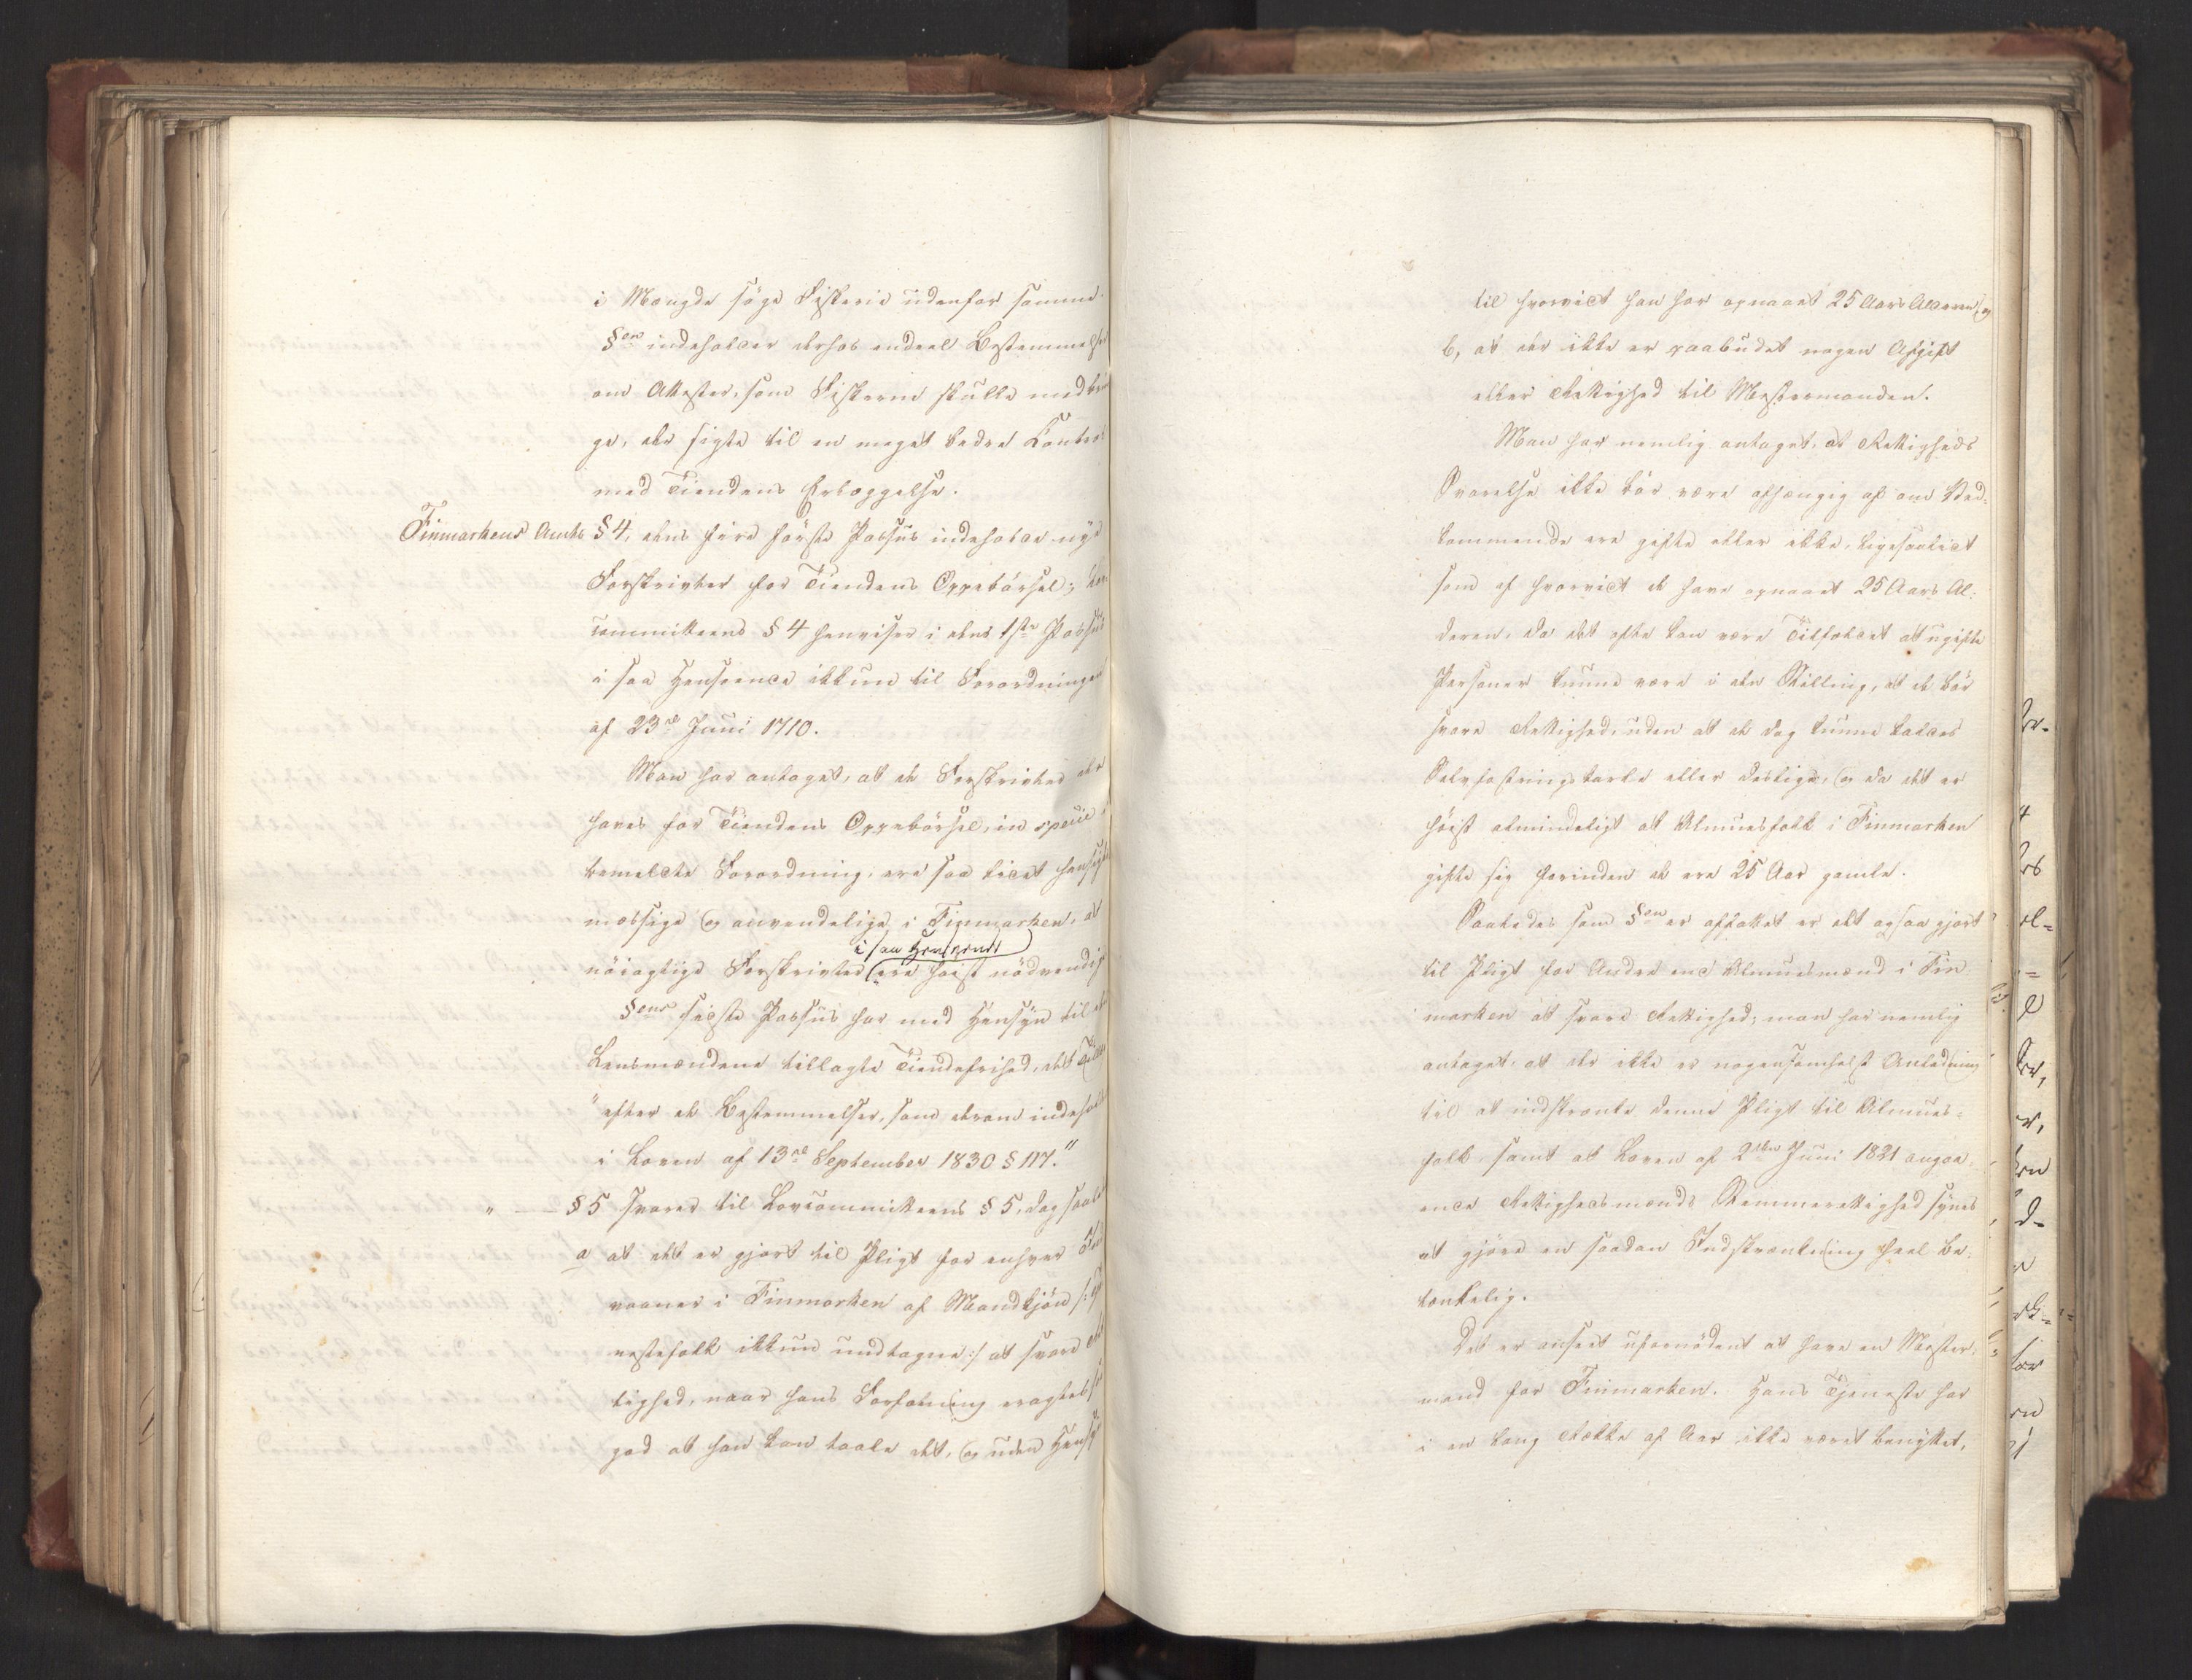 i Mængde søge Fiskerie udenfor samme.
§en indeholder derhos endeel Bestemmelser
om Attester, som Fiskerne skulle medbrin
ge, der sigte til en meget bedre Control
med Tiendens Erlæggelse.
Finmarkens Amts § 4, dens fire første Passus indeholde nye
Forskrivter for Tiendens Oppebørsel; Lov
committeens § 4 henviser i dens 1ste Passus
i saa Henseende ikkun til Forordningen
af 23de Juni 1710.
Man har antaget, at de Forskrivter der
haves for Tiendens Oppebørsel, in specie
bemeldte Forordning, ere saa lidet hensigts
mæssige og anvendelige i Finmarken, at
i saa Henseende
nöiagtige Forskrivter ere høist nödvendige
§ens sidste Passus har med Hensyn til de
Lensmændene tillagte Tiendefrihed, det
"efter de Bestemmelser, som derom indeholdes
i Loven af 13de September 1830 § 117."
" — § 5 svarer til Lovcommitteens § 5, dog saaledes
a at det er gjort til Pligt for enhver Ind
vaaner i Finmarken af Mandkjön /: Tje
nestefolk ikkun undtagne :/ at svare Ret
tighed, naar hans Forfatning eragtes saa
god at han kan taale det, og uden Hensyn
til hvorvidt han har opnaaet 25 Aars Alderen, og
b, at der ikke er paabudet nogen Afgift
eller Rettighed til Mestermanden.
Man har nemlig antaget, at Rettigheds
Svarelse ikke bör være afhængig af om Ved-
kommende ere gifte eller ikke, ligesaalidt
som af hvorvidt de have opnaaet 25 Aars Al-
deren, da det ofte kan være Tilfældet at ugifte
Personer kunne være i den Stilling, at de bör
svare Rettighed, uden at de dog kunne kaldes
Selvfostringskarle eller deslige, og da det er
höist almindeligt at Almuesfolk i Finmarken
gifte sig forinden de ere 25 Aar gamle.
Saaledes som §en er affattet er det ogsaa gjort
til Pligt for Andre end Almuesmænd i Fin
marken at svare Rettighed; man har nemlig
antaget, at der ikke er nogensomhelst Anledning
til at indskrænke denne Pligt til Almues-
folk, samt at Loven af 2den Juni 1821 angaa
ende Rettighedsmænds Stemmerettighed synes
at gjöre en saadan Indskrænkning heel be-
tænkelig.
Det er anseet ufornödent at have en Mester-
mand for Finmarken. Hans Tjeneste har
i en lang Række af Aar ikke været benyttet,